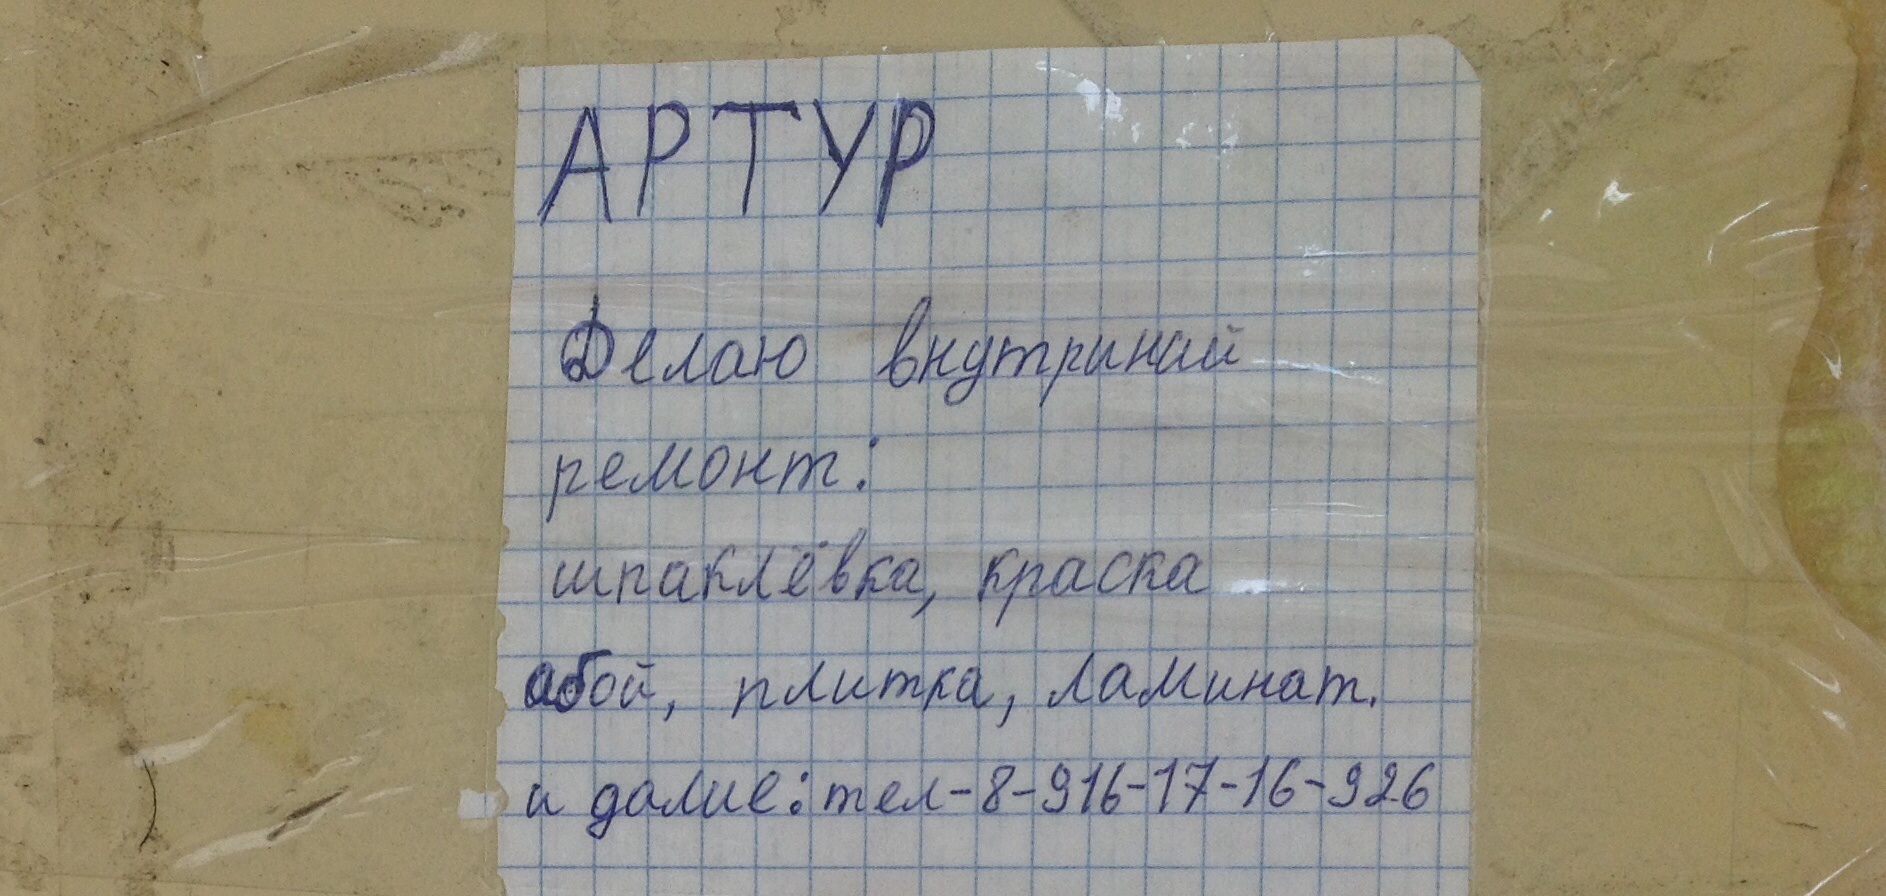 АРТУР
Делаю внутриний
ремонт:
шпаклёвка, краска
абой, плитка, ламинат.
и далше: тел-8-916-17-16-926